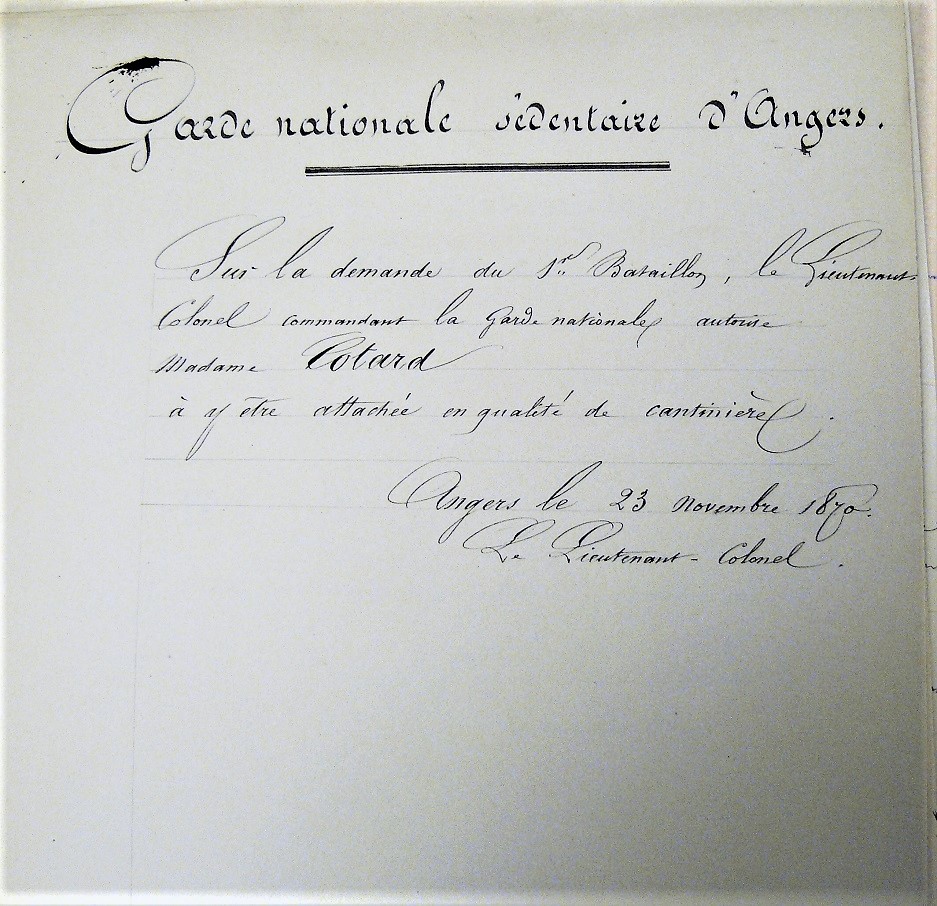 Garde nationale sédentaire d'Angers.
Sur la demande du 1er Bataillon, le Lieutenant-
Colonel commandant la Garde nationale autorise
Madame Cotard
à y être attachée en qualité de cantinière.
Angers le 23 novembre 1870.
Le Lieutenant-Colonel.